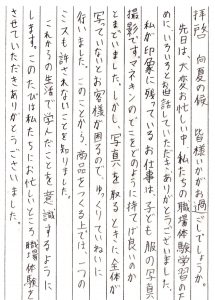 拝啓 向夏の候、皆様いかがお過ごしでしょうか。
先日は大変お忙しい中、私たちの職場体験学習のた
めにいろいろとお世話していただきありがとうございました。
私が印象に残っているお仕事は、子ども服の写真
撮影です。マネキンのどこをどのように持てば良いのか
とまどいました。しかし、写真を取るときに、全体が
写っていないとお客様が困るので、ゆっくりていねいに
行いました。このことから、商品をつくる上では、一つの
ミスも許されないことを知りました。
これからの生活で学んだことを意識するように
します。このたびは私たちにお忙しいところ職場体験を
させていただきありがとうございました。